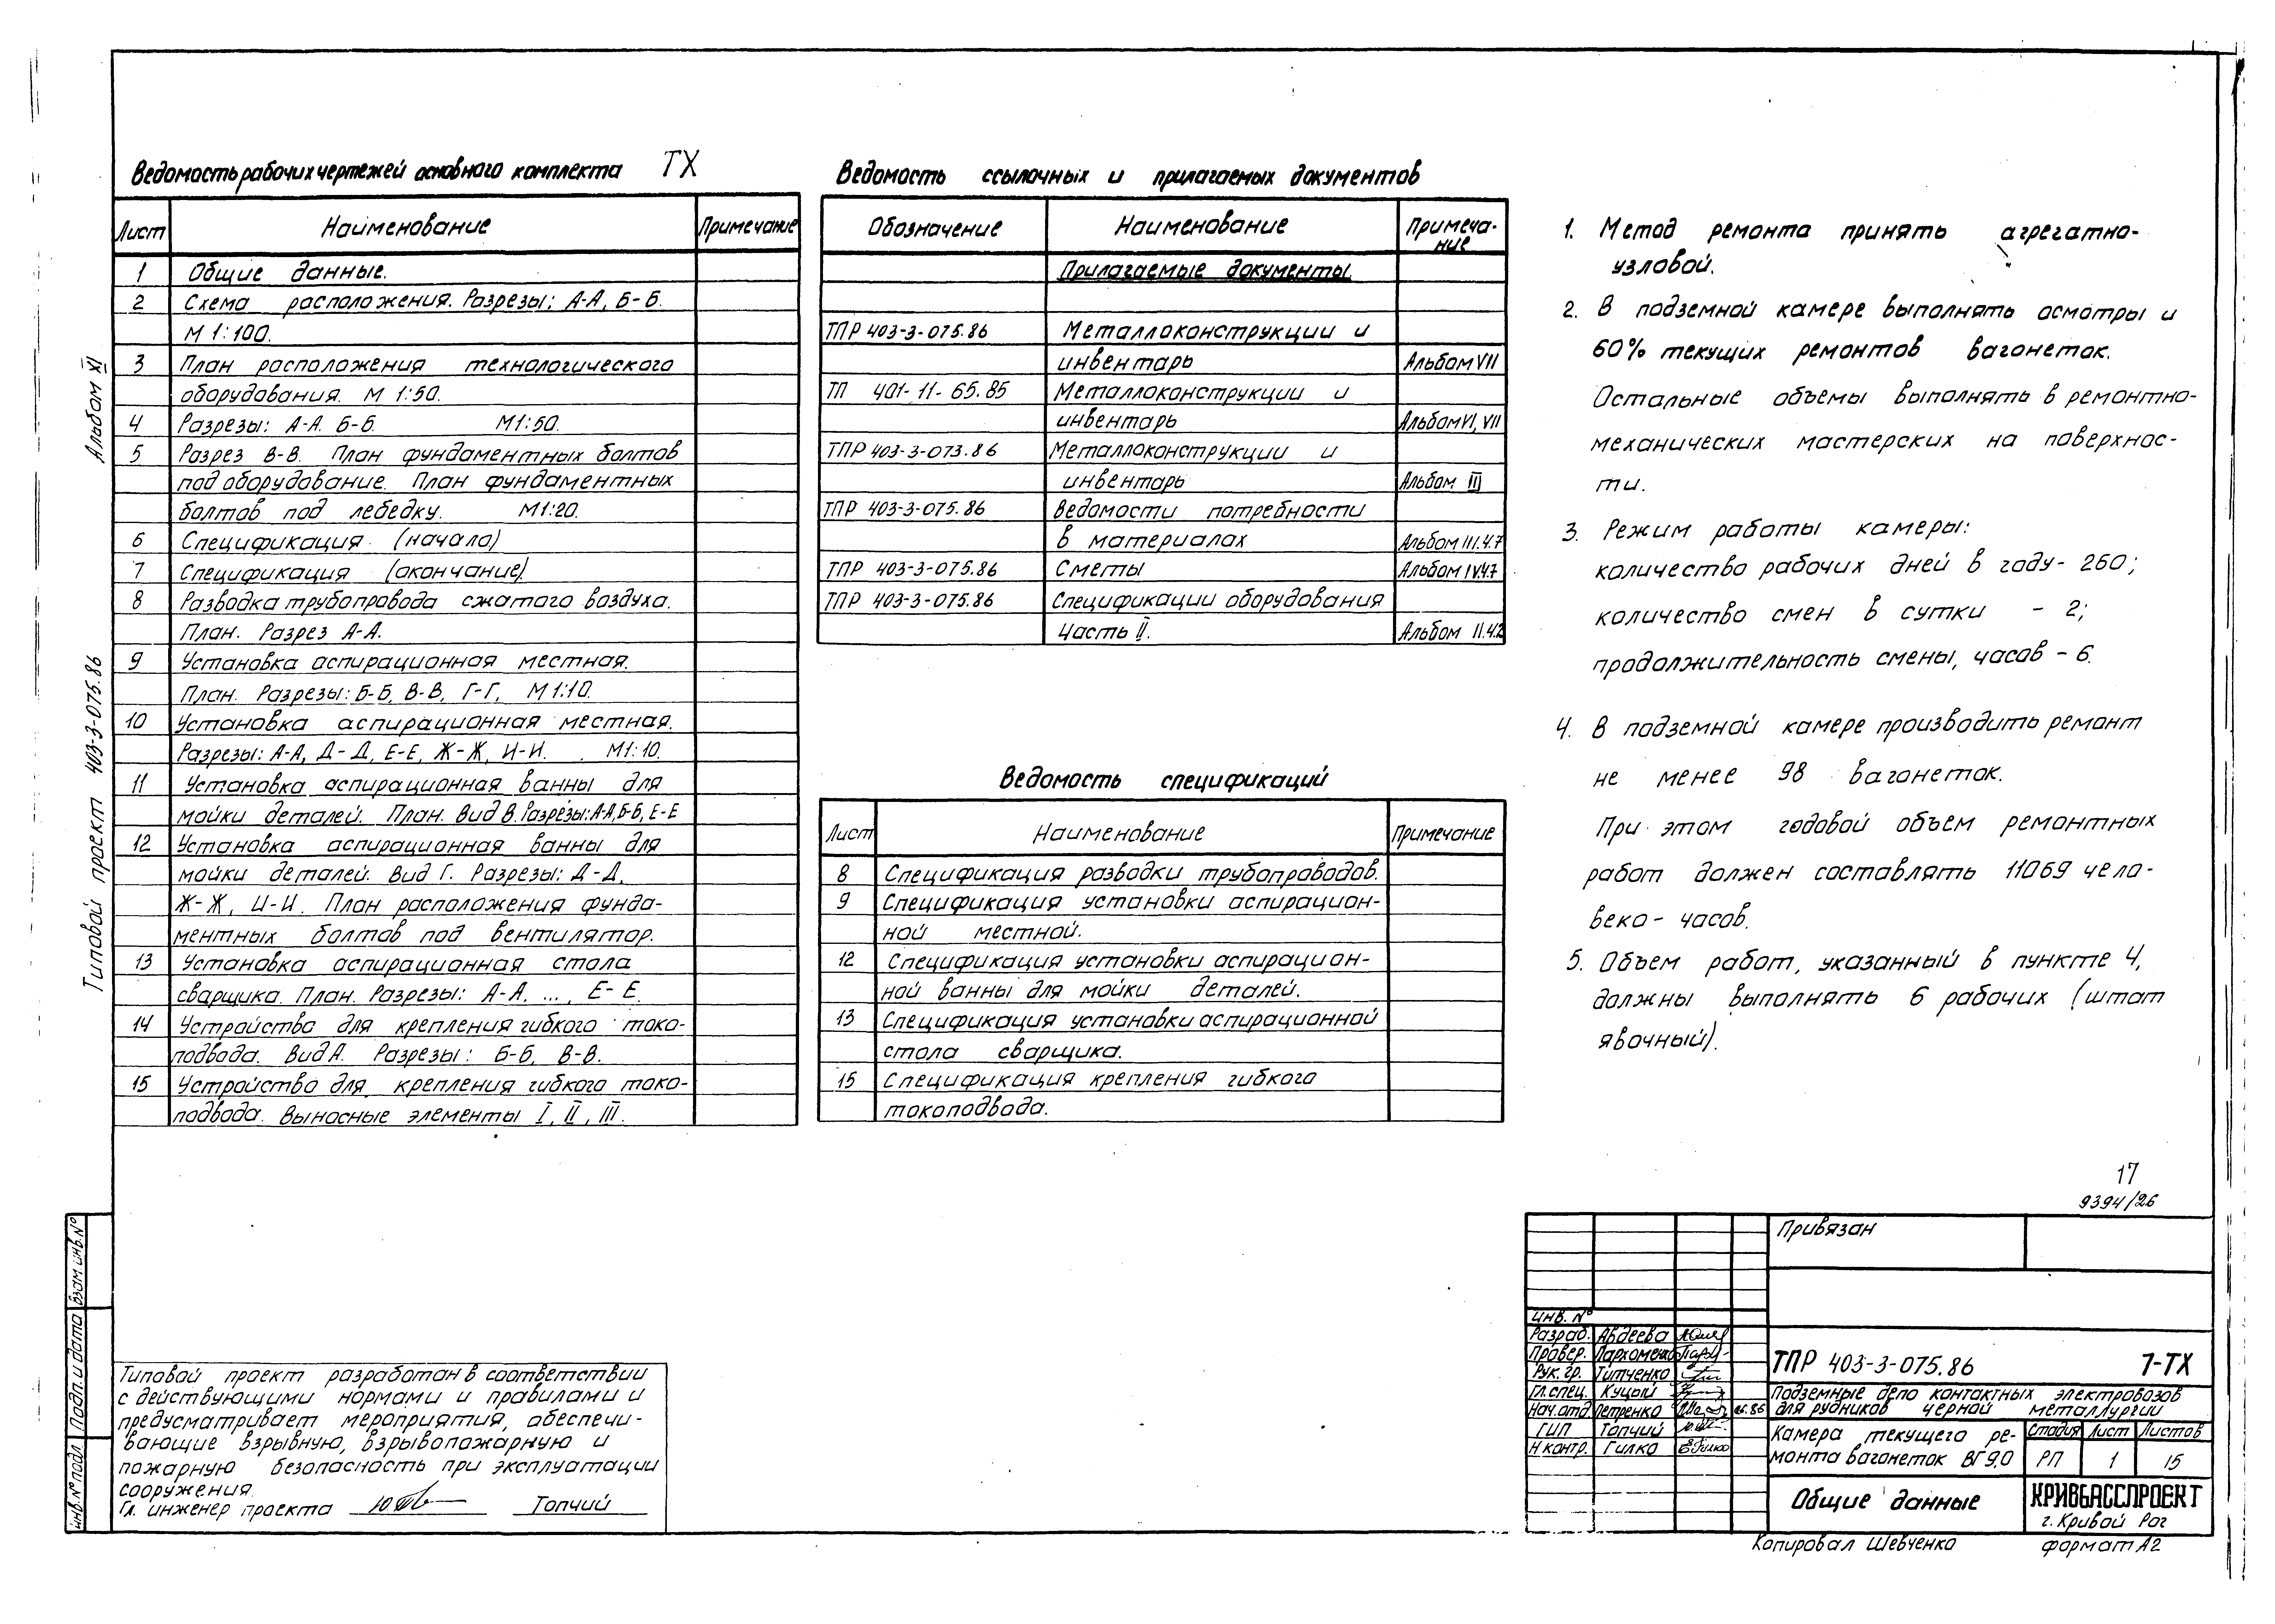 Ведомость рабочих чертежей основного комплекта ТХ
Лист Наименование Примечание
1 Общие данные.
2 Схема расположения. Разрезы: А-А, Б-Б.
М 1:100.
3 План расположения технологического
оборудования. М 1:50.
4 Разрезы: А-А. Б-Б. М1:50.
5 Разрез В-В. План фундаментных болтов
под оборудование. План фундаментных
болтов под лебедку. М1:20.
6 Спецификация (начало)
7 Спецификация (окончание)
8 Разводка трубопровода сжатого воздуха.
План. Разрез А-А.
9 Установка аспирационная местная.
План. Разрезы: Б-Б, В-В, Г-Г, М 1:10.
10 Установка аспирационная местная.
Разрезы: А-А, Д-Д, Е-Е, Ж-Ж, И-И. М1:10.
11 Установка аспирационная ванны для
мойки деталей. План. Вид В. Разрезы: А-А, Б-Б, Е-Е
12 Установка аспирационная ванны для
мойки деталей. Вид Г. Разрезы: Д-Д,
Ж-Ж, И-И. План расположения фунда-
ментных болтов под вентилятор.
13 Установка аспирационная стола
сварщика. План. Разрезы: А-А, ..., Е-Е.
14 Устройство для крепления гибкого токо-
подвода. Вид А. Разрезы: Б-Б, В-В.
15 Устройство для крепления гибкого токо-
подвода. Выносные элементы I, II, III.
Ведомость ссылочных и прилагаемых документов
Обозначение Наименование Примеча-
ние
Прилагаемые документы
ТПР 403-3-075.86 Металлоконструкции и
инвентарь Альбом VII
ТП 401-11-65.85 Металлоконструкции и
инвентарь Альбом VI, VII
ТПР 403-3-073.86 Металлоконструкции и
инвентарь Альбом III
ТПР 403-3-075.86 Ведомости потребности
в материалах Альбом III.4.7
ТПР 403-3-075.86 Сметы Альбом IV.4.7
ТПР 403-3-075.86 Спецификации оборудования
Часть II. Альбом II.4.2
Ведомость спецификаций
Лист Наименование Примечание
8 Спецификация разводки трубопроводов.
9 Спецификация установки аспирацион-
ной местной.
12 Спецификация установки аспирацион-
ной ванны для мойки деталей.
13 Спецификация установки аспирационной
стола сварщика.
15 Спецификация крепления гибкого
токоподвода.
1. Метод ремонта принять агрегатно-
узловой.
2. В подземной камере выполнять осмотры и
60% текущих ремонтов вагонеток.
Остальные объемы выполнять в ремонтно-
механических мастерских на поверхнос-
ти.
3. Режим работы камеры:
количество рабочих дней в году - 260;
количество смен в сутки - 2;
продолжительность смены, часов - 6.
4. В подземной камере производить ремонт
не менее 98 вагонеток.
При этом годовой объем ремонтных
работ должен составлять 11069 чело-
веко-часов.
5. Объем работ, указанный в пункте 4,
должны выполнять 6 рабочих (штат
явочный).
17
9394/26
Альбом XI
Типовой проект 403-3-075.86
Взам. инв. №
Подп. и дата
Инв. № подл.
Типовой проект разработан в соответствии
с действующими нормами и правилами и
предусматривает мероприятия, обеспечи-
вающие взрывную, взрывопожарную и
пожарную безопасность при эксплуатации
сооружения.
Гл. инженер проекта Топчий
Привязан
инв. №
Разраб. Авдеева
Провер. Пархоменко
Рук. гр. Титченко
Гл. спец. Куцый
Нач. отд Петренко
ГИП Топчий
Н контр. Гилко
ТПР 403-3-075.86 7-ТХ
Подземные депо контактных электровозов
для рудников черной металлургии
Камера текущего ре-
монта вагонеток ВГ 9,0
Стадия Лист Листов
РП 1 15
Общие данные
КРИВБАССПРОЕКТ
г. Кривой Рог
Копировал Шевченко формат А2